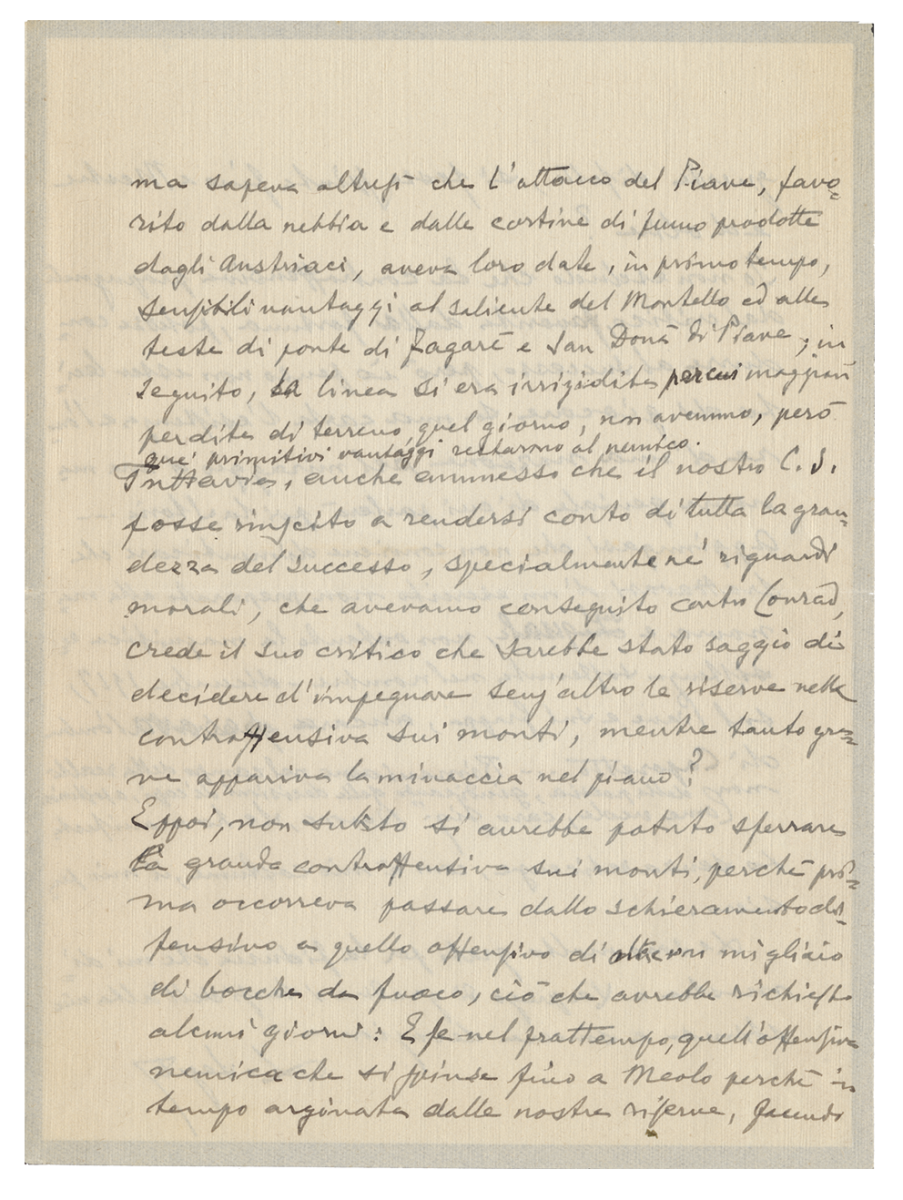 ma sapeva altresì che l'attacco del Piave, favo=
rito dalla nebbia e dalle cortine di fumo prodotte
dagli Austriaci, aveva loro dato, in primo tempo,
sensibili vantaggi al saliente del Montello ed alle
teste di ponte di Fagarè e San Donà di Piave; in
seguito, la linea si era irrigidita per cui maggiori
perdite di terreno quel giorno, non avemmo, però
que' primitivi vantaggi restarono al nemico.
Tuttavia, anche ammesso che il nostro C. S.
fosse riuscito a rendersi conto di tutta la gran=
dezza del successo, specialmente ne' riguardi
morali, che avevamo conseguito contro Conrad,
crede il suo critico che sarebbe stato saggio di
decidere d'impegnare senz'altro le riserve nella
controffensiva sui monti, mentre tanto gra=
ve appariva la minaccia nel piano?
Eppoi, non subito si avrebbe potuto sferrare
la grande controffensiva sui monti, perchè pri=
ma occorreva passare dallo schieramento di=
fensivo a quello offensivo di migliaio
di bocche da fuoco, ciò che avrebbe richiesto
alcuni giorni: E se nel frattempo, quell'offensiva
nemica che si spinse fino a Meolo perchè in
tempo arginata dalle nostre riserve, facendo